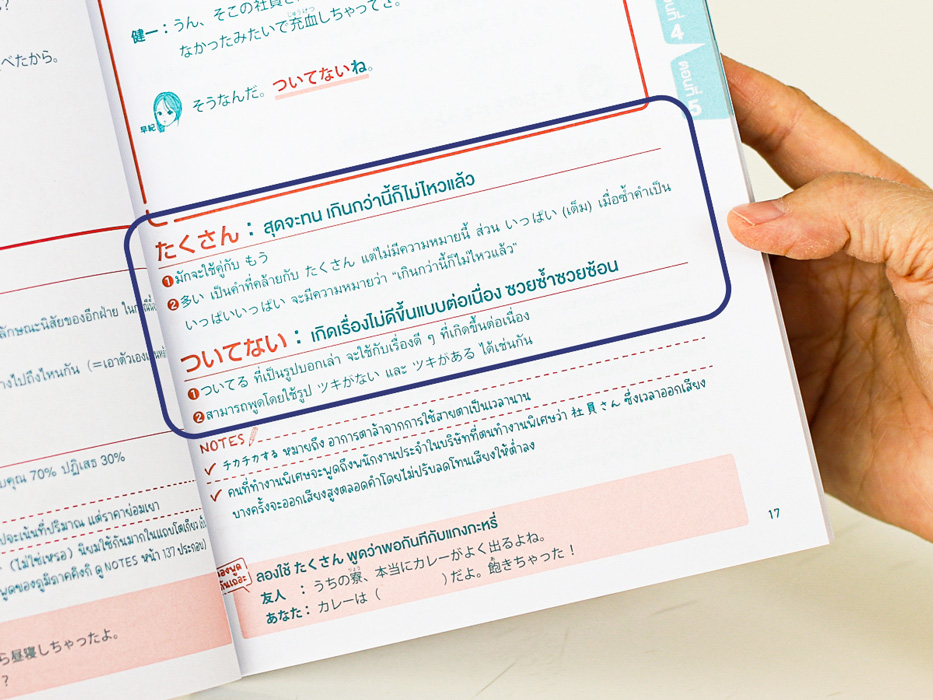 べたから。
ลักษณะนิสัยของอีกฝ่าย
างไปถึงไหนกัน (=เอาตัวเอง
บคุณ 70% ปฏิเสธ 30%
ปจะเน้นที่ปริมาณ แต่ราคาย่อมเยา
(ไม่ใช่เหรอ) นิยมใช้กันมากในแถบโตเกียว
พูดของภูมิภาคคิงกิ ดู NOTES หน้า 137 ประกอบ)
ら昼寝しちゃったよ。
?
健一：うん、そこの社員さ
なかったみたいで充血しちゃってさ。
じゅうけつ
早紀
そうなんだ。ついてないね。
たくさん : สุดจะทน เกินกว่านี้ก็ไม่ไหวแล้ว
❶ มักจะใช้คู่กับ もう
❷ 多い เป็นคำที่คล้ายกับ たくさん แต่ไม่มีความหมายนี้ ส่วน いっぱい (เต็ม) เมื่อซ้ำคำเป็น
いっぱいいっぱい จะมีความหมายว่า "เกินกว่านี้ก็ไม่ไหวแล้ว"
ついてない : เกิดเรื่องไม่ดีขึ้นแบบต่อเนื่อง ซวยซ้ำซวยซ้อน
❶ ついてる ที่เป็นรูปบอกเล่า จะใช้กับเรื่องดี ๆ ที่เกิดขึ้นต่อเนื่อง
❷ สามารถพูดโดยใช้รูป ツキがない และ ツキがある ได้เช่นกัน
NOTES
✓ チカチカする หมายถึง อาการตาล้าจากการใช้สายตาเป็นเวลานาน
✓ คนที่ทำงานพิเศษจะพูดถึงพนักงานประจำในบริษัทที่ตนทำงานพิเศษว่า 社員さん ซึ่งเวลาออกเสียง
บางครั้งจะออกเสียงสูงตลอดคำโดยไม่ปรับลดโทนเสียงให้ต่ำลง
ลองใช้ たくさん พูดว่าพอกันทีกับแกงกะหรี่
友人 ：うちの寮、本当にカレーがよく出るよね。
りょう
あなた：カレーは（ ）だよ。飽きちゃった！
17
ตอนที่ 4
ตอนที่ 5